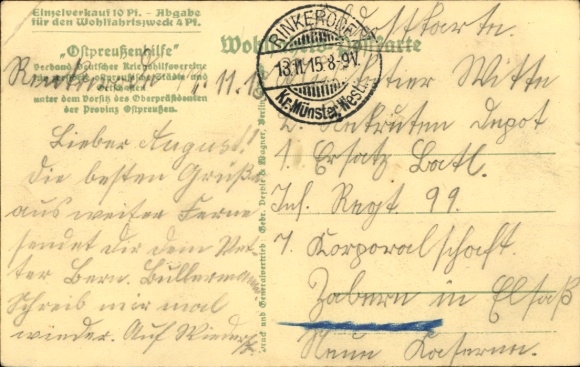 Einzelverkauf 10 Pf. - Abgabe
für den Wohlfahrtszweck 4 Pf.
"Ostpreußenhilfe"
Verband deutscher Kriegshilfsvereine
für zerstörte ostpreußische Städte und
Ortschaften
unter dem Vorsitz des Oberpräsidenten
der Provinz Ostpreußen.
11.15
Lieber August!
Die besten Grüße
aus weiter Ferne
sendet dir dem Vet-
ter Bern. Bullermann
Schreib mir mal
wieder. Auf Wieders
Druck und Generalvertrieb - Gebr. Wagner, Berlin
RINKERODE
13.11.15. 8-9V.
Kr. Münster, Westf.
Feldpostkarte.
Wohlfahrts-Postkarte
Witte
2. Rekruten Depot
1. Ersatz Batl.
Inf. Regt 99.
7. Korporalschaft.
Zabern in Elsaß
Neue Kaserne.